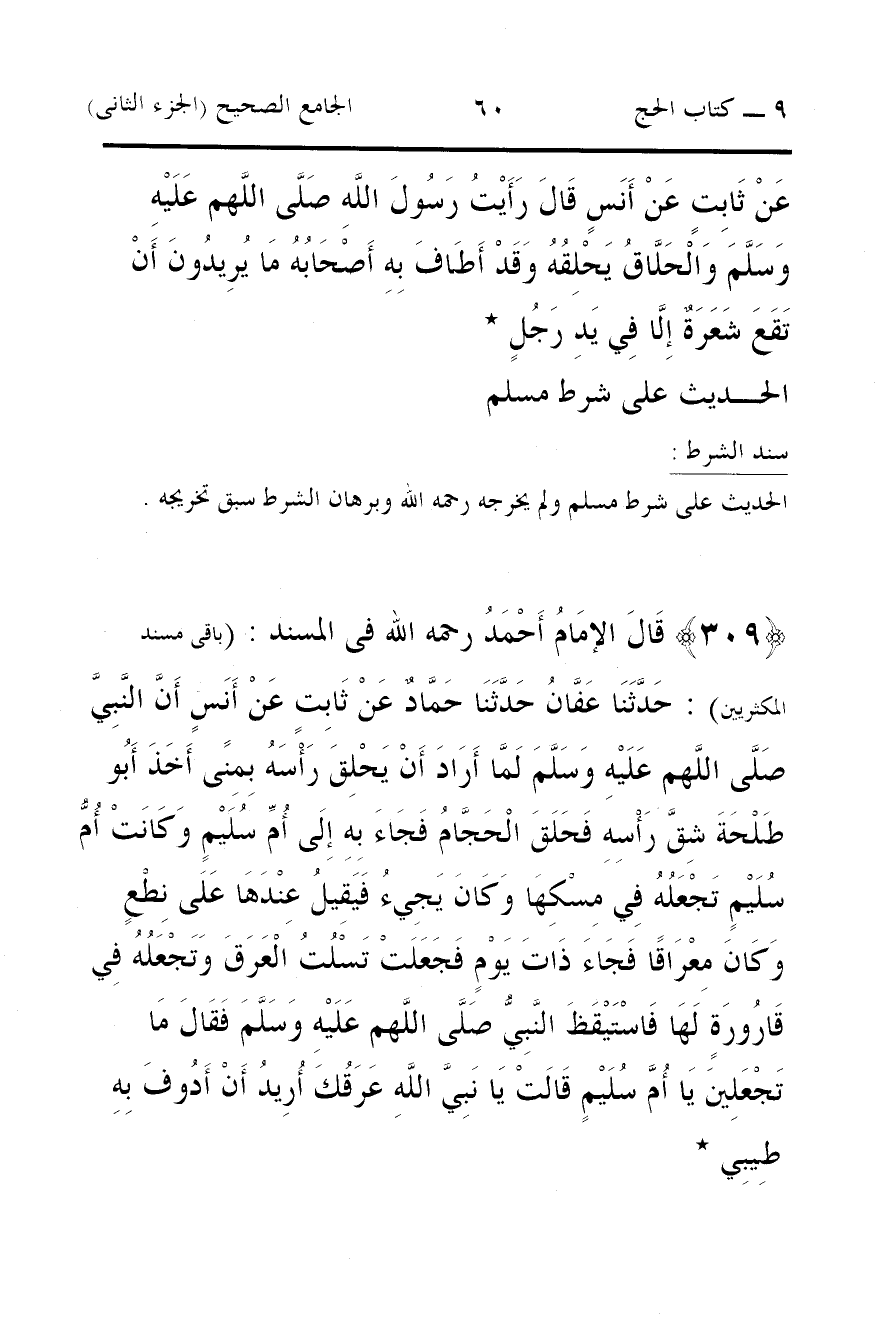 ٩ ــ كتاب الحج ٦٠ الجامع الصحيح (الجزء الثانى)
عَنْ ثَابِتٍ عَنْ أَنَسٍ قَالَ رَأَيْتُ رَسُولَ اللَّهِ صَلَّى اللَّهم عَلَيْهِ
وَسَلَّمَ وَالْحَلَّاقُ يَحْلِقُهُ وَقَدْ أَطَافَ بِهِ أَصْحَابُهُ مَا يُرِيدُونَ أَنْ
تَقَعَ شَعَرَةٌ إِلَّا فِي يَدِ رَجُلٍ *
الحـــديث على شرط مسلم
سند الشرط :
الحديث على شرط مسلم ولم يخرجه رحمه الله وبرهان الشرط سبق تخريجه .
﴿٣٠٩﴾ قَالَ الإمَامُ أَحْمَدُ رحمه الله فى المسند : (باقى مسند
المكثريين) : حَدَّثَنَا عَفَّانُ حَدَّثَنَا حَمَّادٌ عَنْ ثَابِتٍ عَنْ أَنَسٍ أَنَّ النَّبِيَّ
صَلَّى اللَّهم عَلَيْهِ وَسَلَّمَ لَمَّا أَرَادَ أَنْ يَحْلِقَ رَأْسَهُ بِمِنًى أَخَذَ أَبُو
طَلْحَةَ شِقَّ رَأْسِهِ فَحَلَقَ الْحَجَّامُ فَجَاءَ بِهِ إِلَى أُمِّ سُلَيْمٍ وَكَانَتْ أُمُّ
سُلَيْمٍ تَجْعَلُهُ فِي مِسْكِهَا وَكَانَ يَجِيءُ فَيَقِيلُ عِنْدَهَا عَلَى نِطْعٍ
وَكَانَ مِعْرَاقًا فَجَاءَ ذَاتَ يَوْمٍ فَجَعَلَتْ تَسْلُتُ الْعَرَقَ وَتَجْعَلُهُ فِي
قَارُورَةٍ لَهَا فَاسْتَيْقَظَ النَّبِيُّ صَلَّى اللَّهم عَلَيْهِ وَسَلَّمَ فَقَالَ مَا
تَجْعَلِينَ يَا أُمَّ سُلَيْمٍ قَالَتْ يَا نَبِيَّ اللَّهِ عَرَقُكَ أُرِيدُ أَنْ أَدُوفَ بِهِ
طِيبِي *